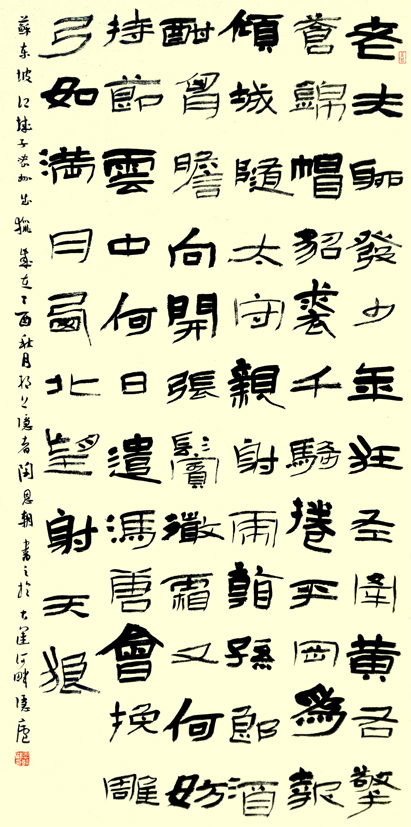 老夫聊發少年狂左牽黃右擎
蒼錦帽貂裘千騎捲平岡為報
傾城隨太守親射虎看孫郎酒
酣胷膽尚開張鬢微霜又何妨
持節雲中何日遣馮唐會挽雕
弓如滿月西北望射天狼
蘇東坡江城子密州出獵歲在丁酉秋月隱者朝書之於古運河畔隱廬